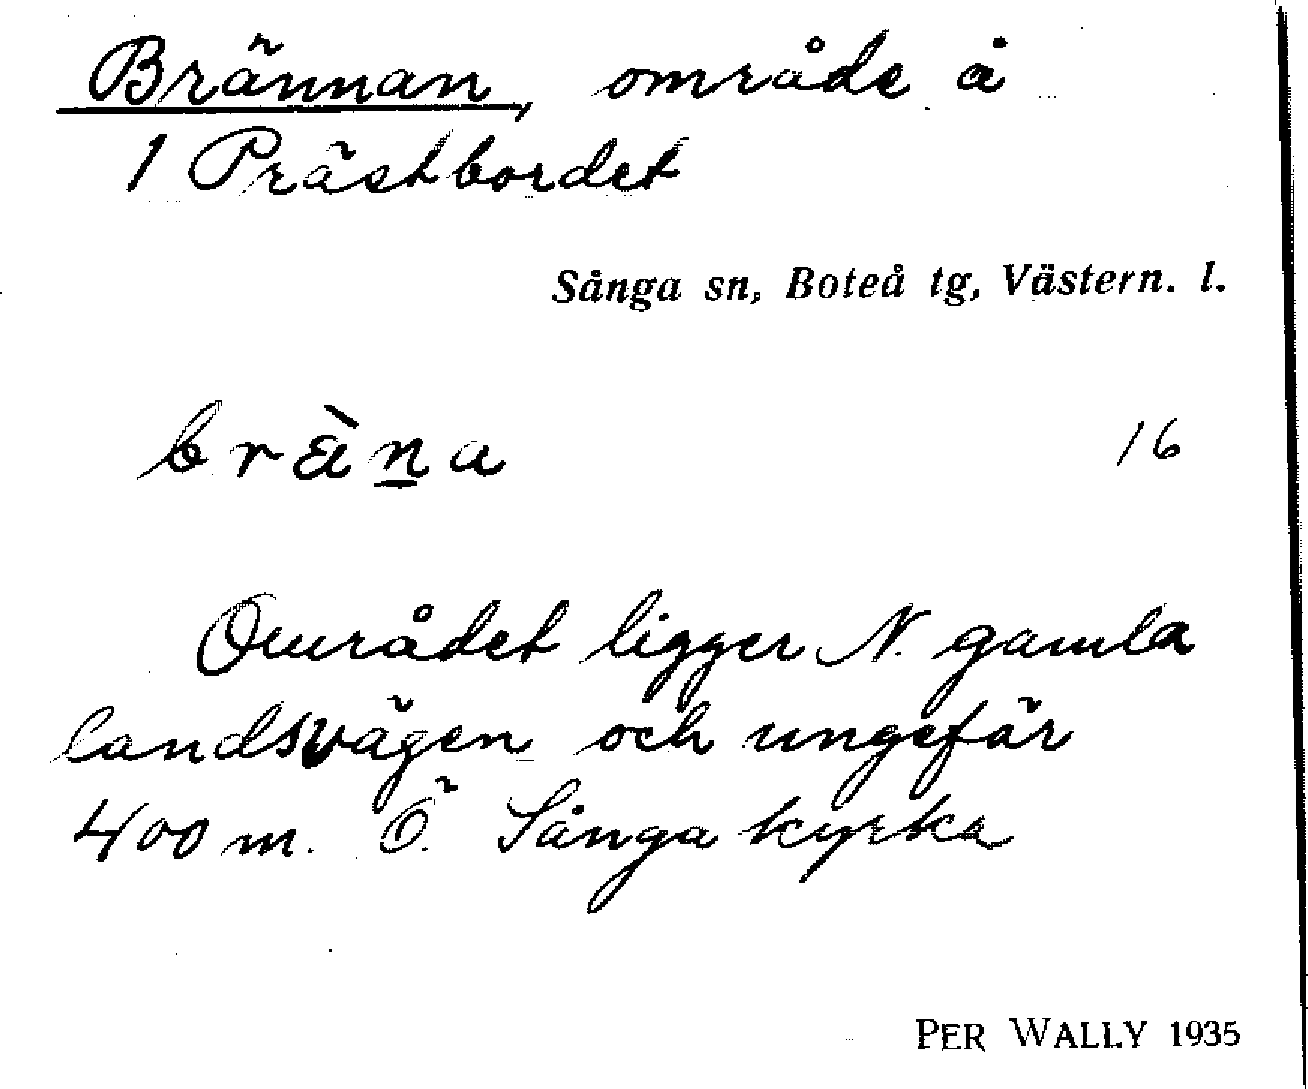 Brännan, område å
1 Prästbordet
Sånga sn, Boteå tg, Västern. l.
bràn̲a 16
Området ligger N. gamla
landsvägen och ungefär
400 m. Ö. Sånga kyrka
PER WALLY 1935